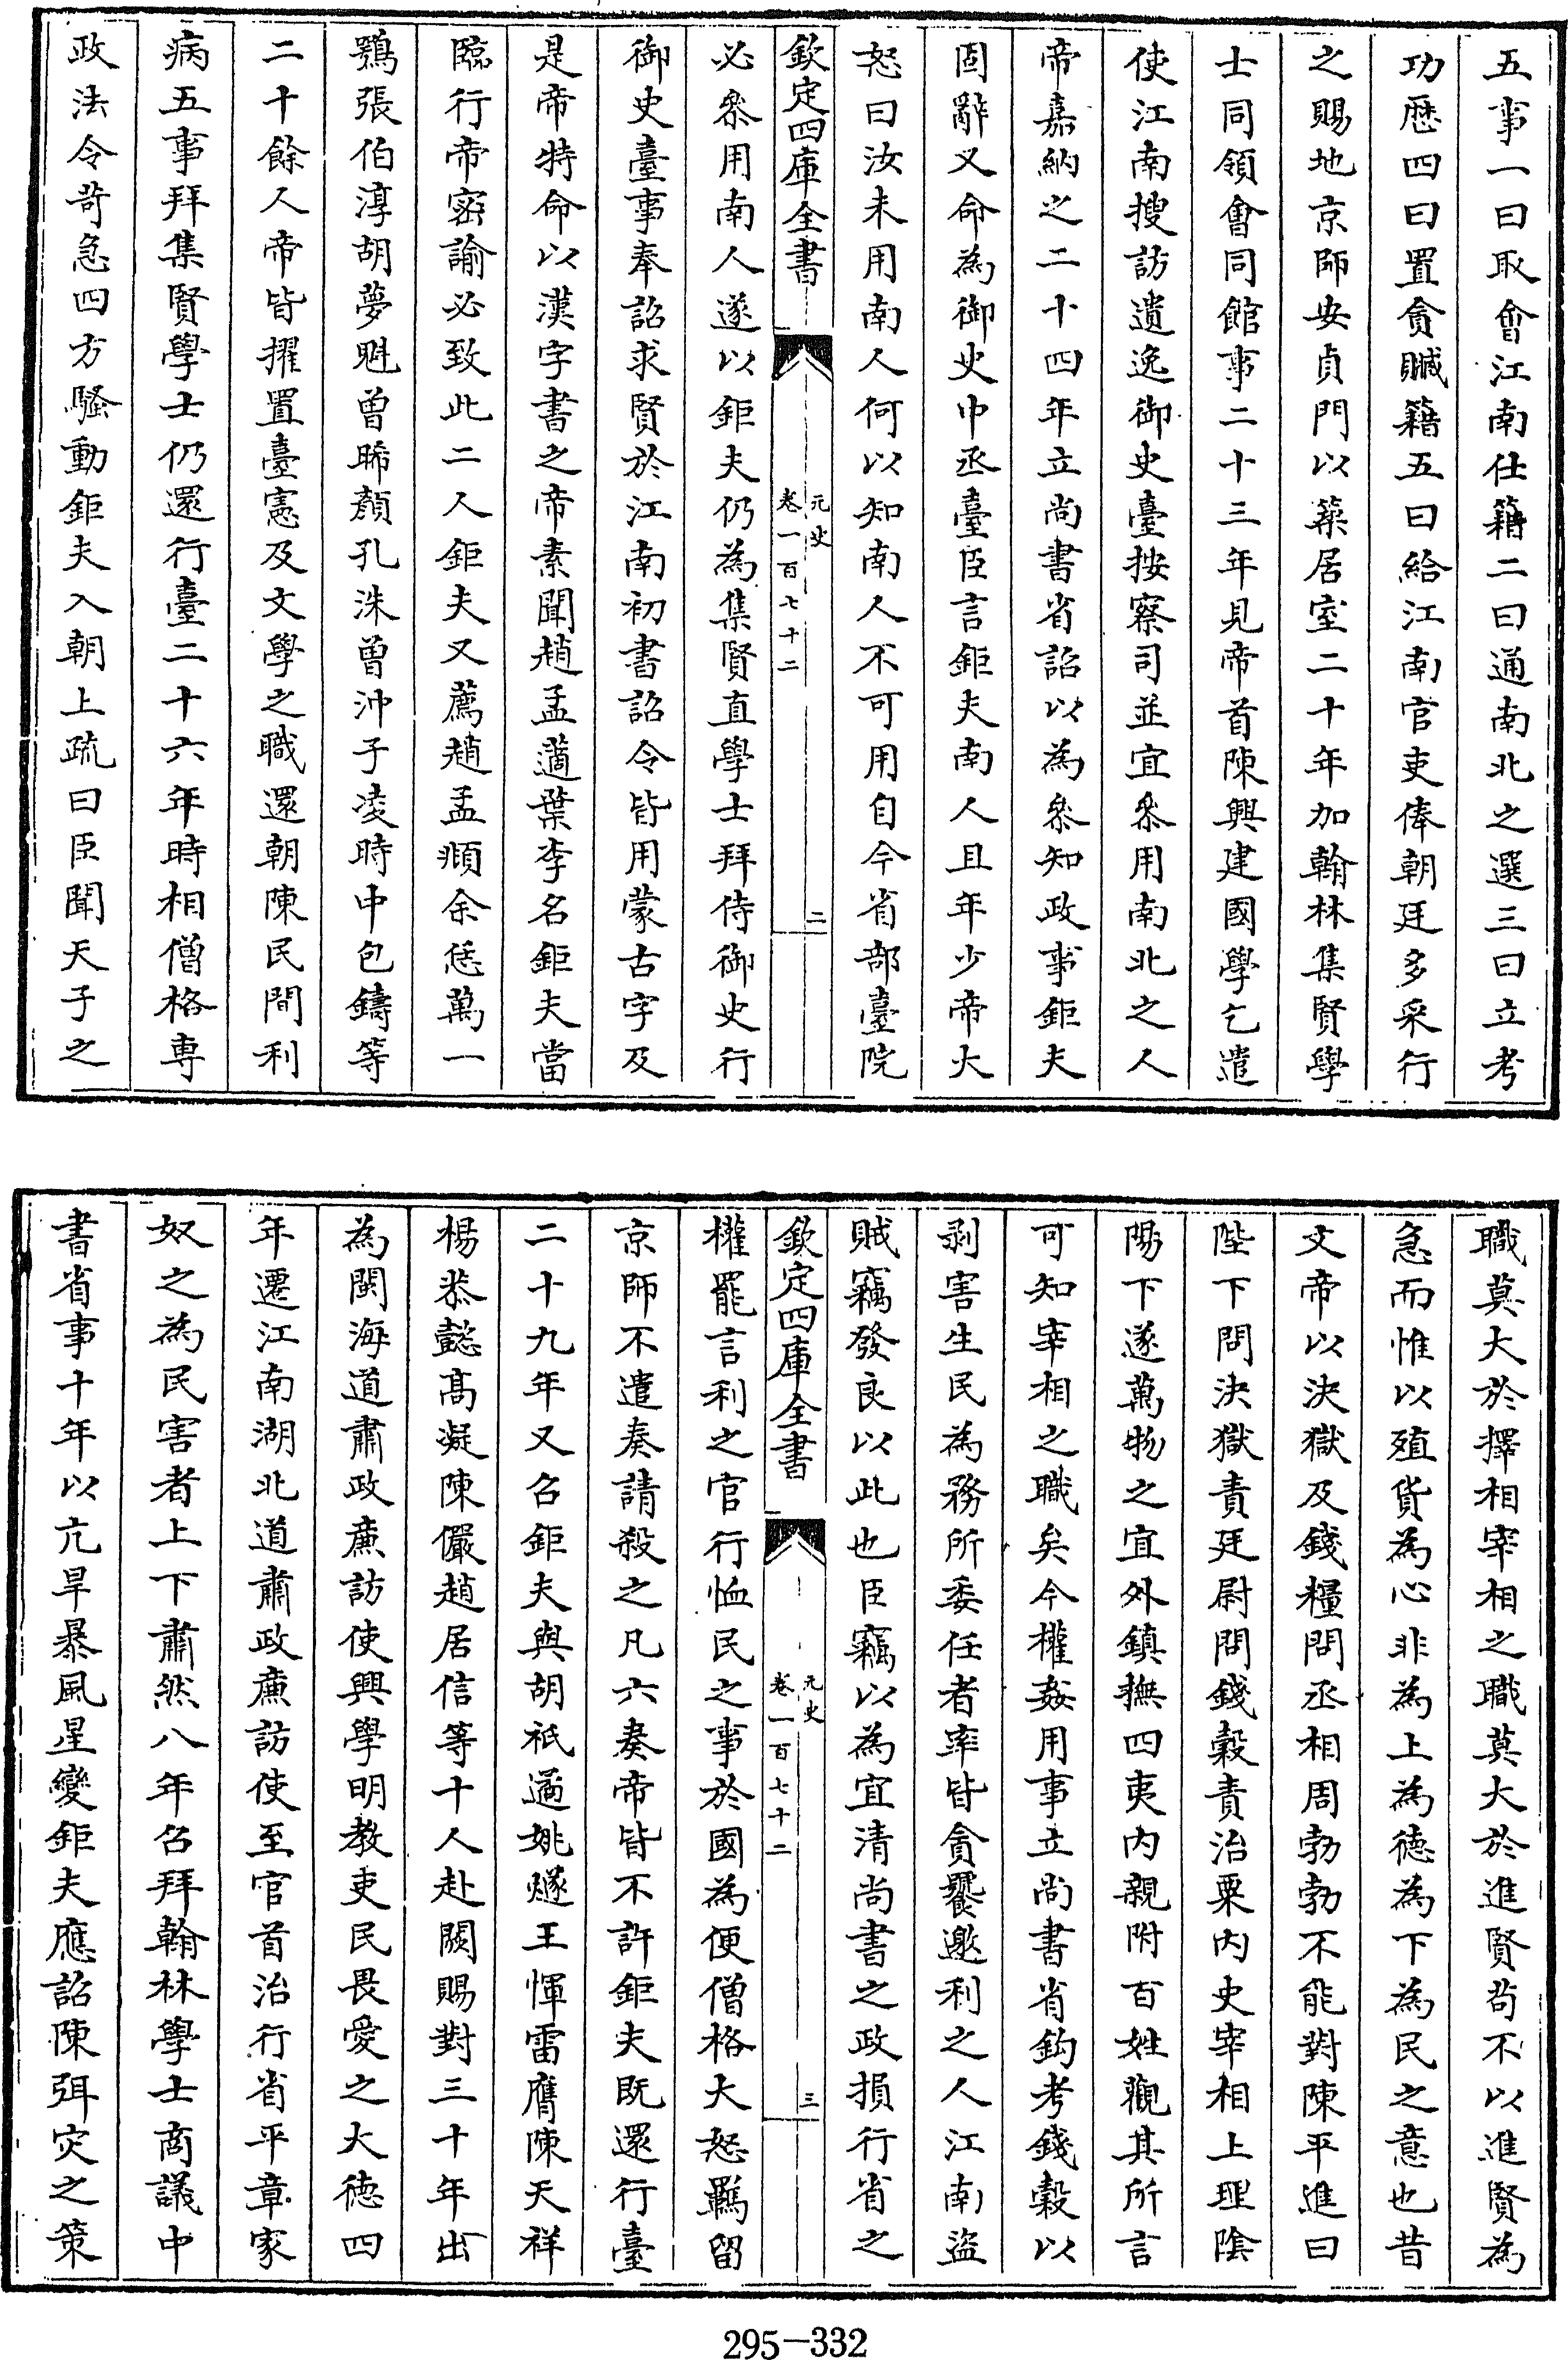 五事一曰取會江南仕籍二曰通南北之選三曰立考
功歴四曰置貪贓籍五曰給江南官吏俸朝廷多采行
之賜地京師安貞門以築居室二十年加翰林集賢學
士同領會同館事二十三年見帝首陳興建國學乞遣
使江南搜訪遺逸御史臺按察司並宜叅用南北之人
帝嘉納之二十四年立尚書省詔以為叅知政事鉅夫
固辭又命為御史中丞臺臣言鉅夫南人且年少帝大
怒曰汝未用南人何以知南人不可用自今省部臺院
欽定四庫全書
元史
卷一百七十二
二
必叅用南人遂以鉅夫仍為集賢直學士拜侍御史行
御史臺事奉詔求賢於江南初書詔令皆用蒙古字及
是帝特命以漢字書之帝素聞趙孟藡葉李名鉅夫當
臨行帝密諭必致此二人鉅夫又薦趙孟頫余恁萬一
鶚張伯淳胡夢魁曾晞顏孔洙曾沖子凌時中包鑄等
二十餘人帝皆擢置臺憲及文學之職還朝陳民間利
病五事拜集賢學士仍還行臺二十六年時相僧格専
政法令苛急四方騷動鉅夫入朝上疏曰臣聞天子之
職莫大於擇相宰相之職莫大於進賢茍不以進賢為
急而惟以殖貨為心非為上為徳為下為民之意也昔
文帝以決獄及錢糧問丞相周勃勃不能對陳平進曰
陛下問決獄責廷尉問錢穀責治粟内史宰相上理陰
陽下遂萬物之宜外鎮撫四夷内親附百姓觀其所言
可知宰相之職矣今權姦用事立尚書省鈎考錢穀以
剥害生民為務所委任者率皆貪饕邀利之人江南盜
賊竊發良以此也臣竊以為宜清尚書之政損行省之
欽定四庫全書
元史
卷一百七十二
三
權罷言利之官行恤民之事於國為便僧格大怒羈留
京師不遣奏請殺之凡六奏帝皆不許鉅夫既還行臺
二十九年又召鉅夫與胡祗遹姚燧王惲雷膺陳天祥
楊恭懿髙凝陳儼趙居信等十人赴闕賜對三十年出
為閩海道肅政亷訪使興學明教吏民畏愛之大徳四
年遷江南湖北道肅政亷訪使至官首治行省平章家
奴之為民害者上下肅然八年召拜翰林學士商議中
書省事十年以亢旱暴風星變鉅夫應詔陳弭灾之策
295-332